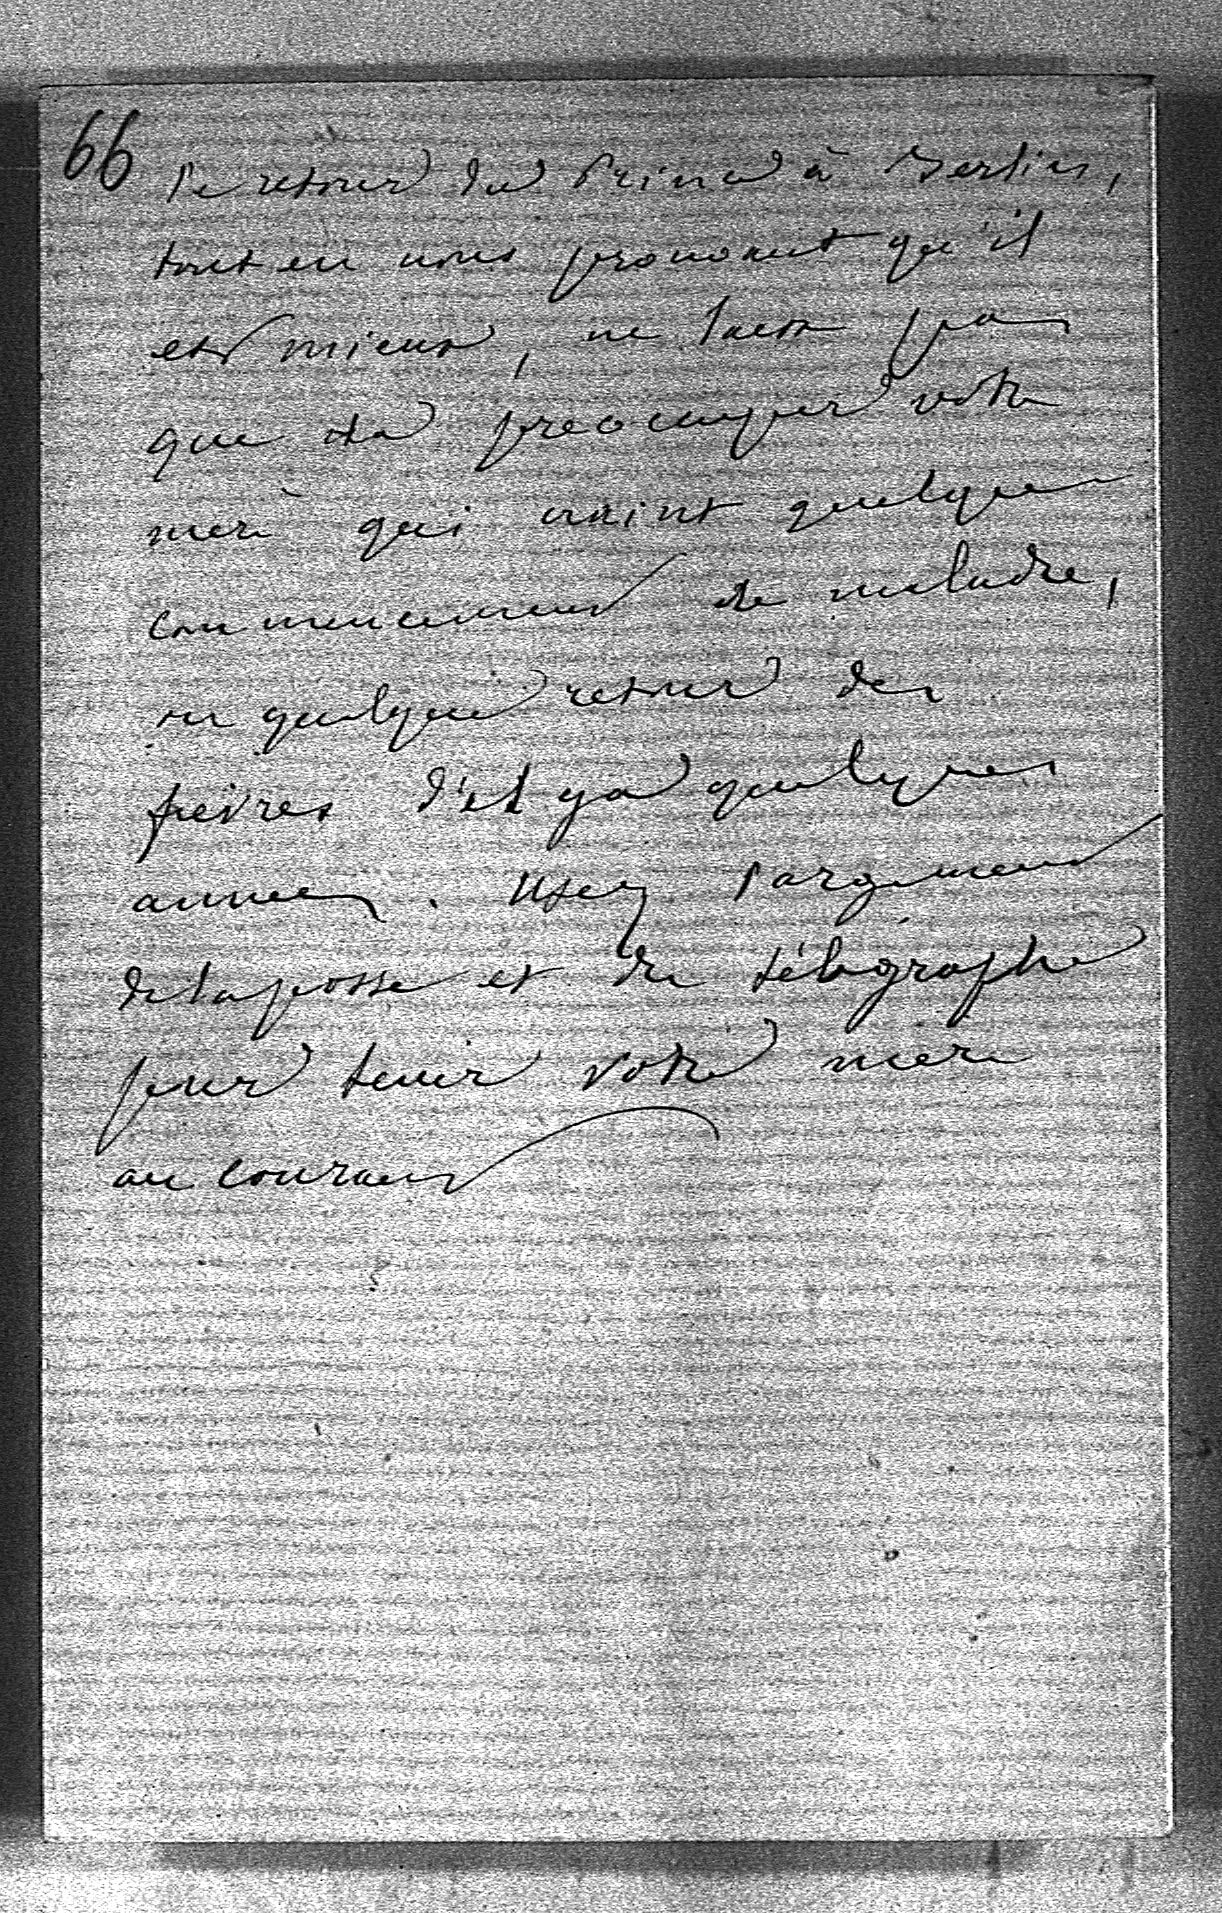 66
le retour du Prince à Berlin,
tout en nous prouvant qu'il
est mieux, ne laisse pas
que de préocuper votre
mère qui craint quelque
commencement de maladie,
ou quelque retour des
fièvres d'il y a quelques
années. Usez largement
de la poste et du télégraphe
pour tenir votre mère
au courant